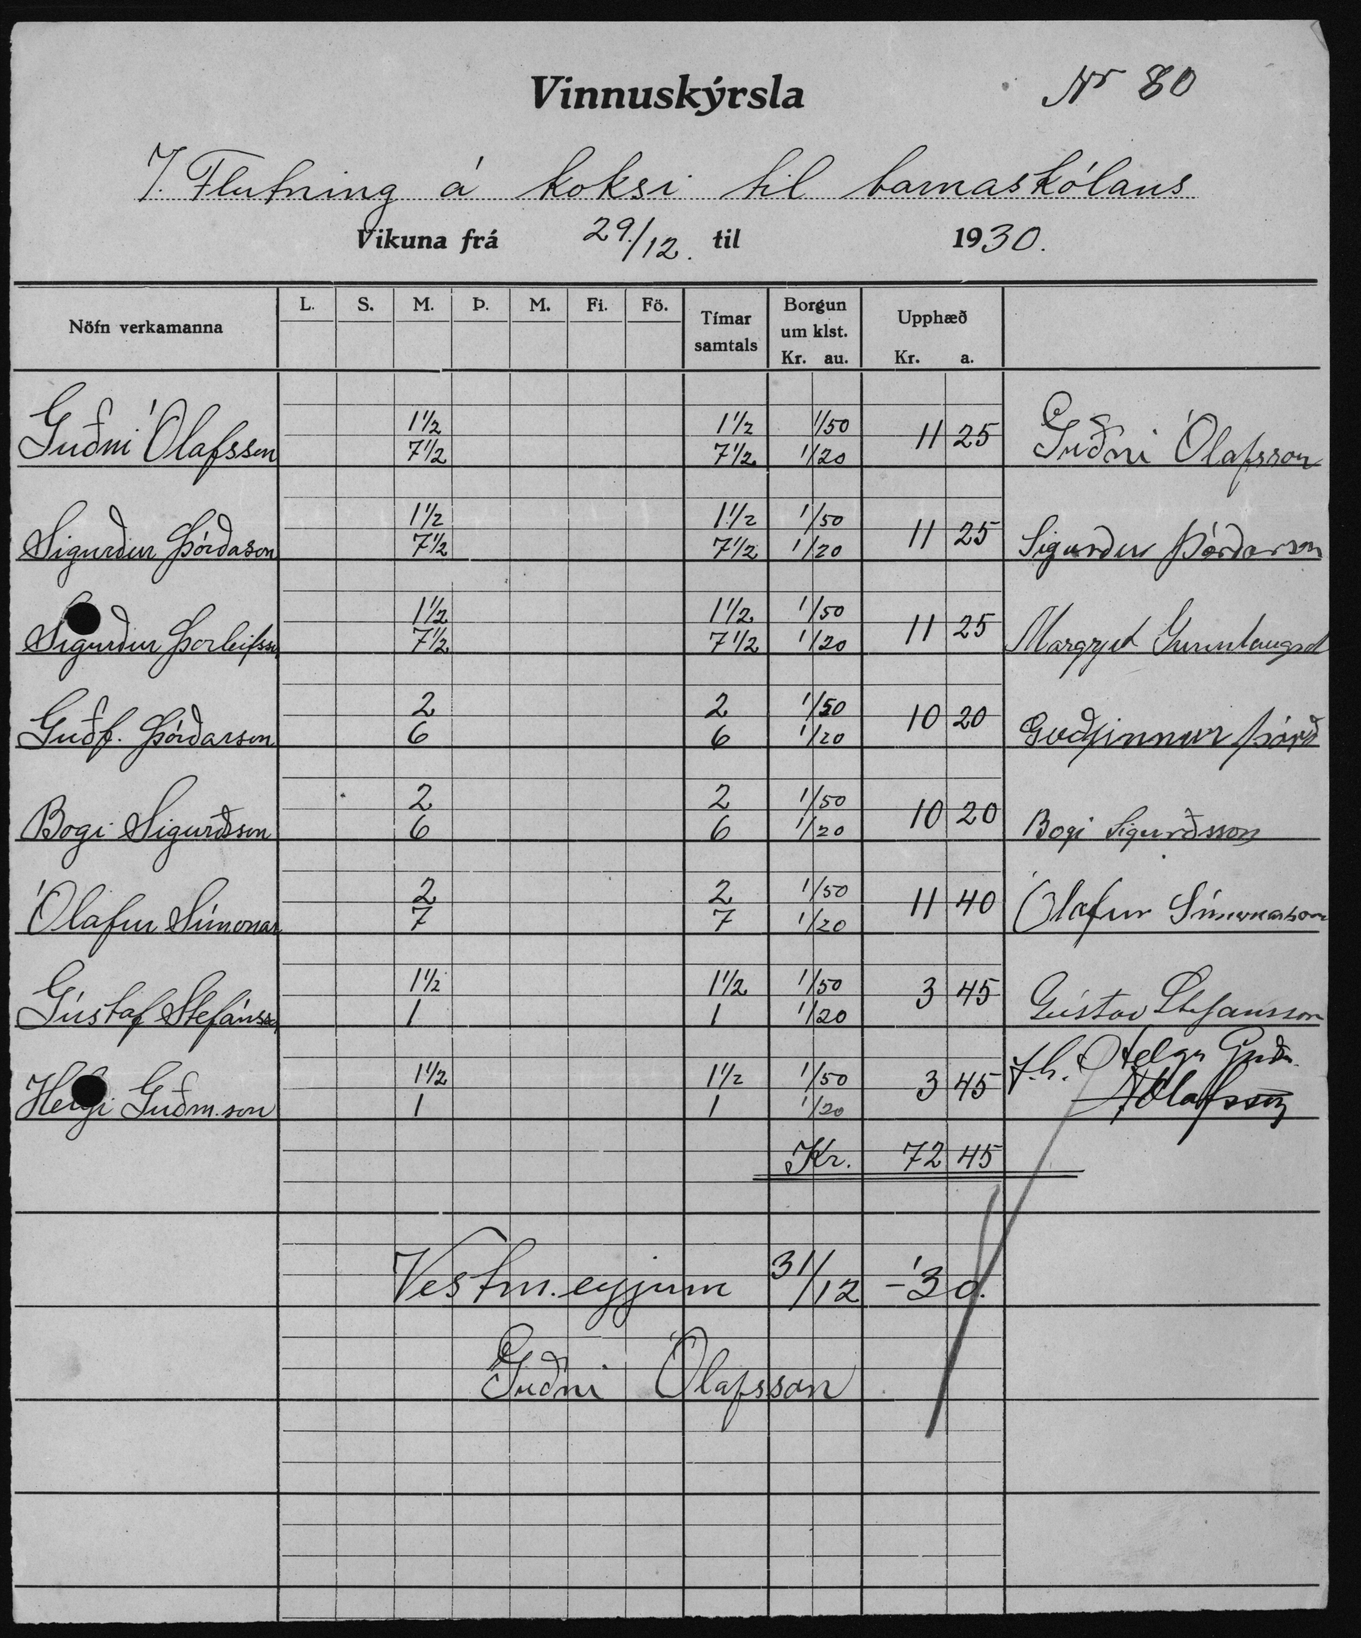 Vinnuskýrsla
Nr 80
7. Flutning á koksi til barnaskólans
Vikuna frá 29./12. til 1930.
Nöfn verkamanna L. S. M. Þ. M. Fi. Fö. Tímar samtals Borgun um klst. Kr. au. Upphæð Kr. a.
1½ 1½ 1/50
Guðni Ólafsson 7½ 7½ 1/20 11 25 Guðni Ólafsson
1½ 1½ 1/50
Sigurður Þórðason 7½ 7½ 1/20 11 25 Sigurður Þórðarson
1½ 1½ 1/50
Sigurður Þorleifsso 7½ 7½ 1/20 11 25 Margrjet Gunnlaugsd
2 2 1/50
Guðf. Þórðarson 6 6 1/20 10 20 Guðfinnur Þórð
2 2 1/50
Bogi Sigurðsson 6 6 1/20 10 20 Bogi Sigurðsson
2 2 1/50
Ólafur Símonar 7 7 1/20 11 40 Ólafur Símonarson
1½ 1½ 1/50
Gústaf Stefánss 1 1 1/20 3 45 Gústav Stefansson
1½ 1½ 1/50 f.h. Helga Guðm.
Helgi Guðm.son 1 1 1/20 3 45 Ólafsson
Kr. 72 45
Vestm.eyjum 31/12 -'30.
Guðni Ólafsson